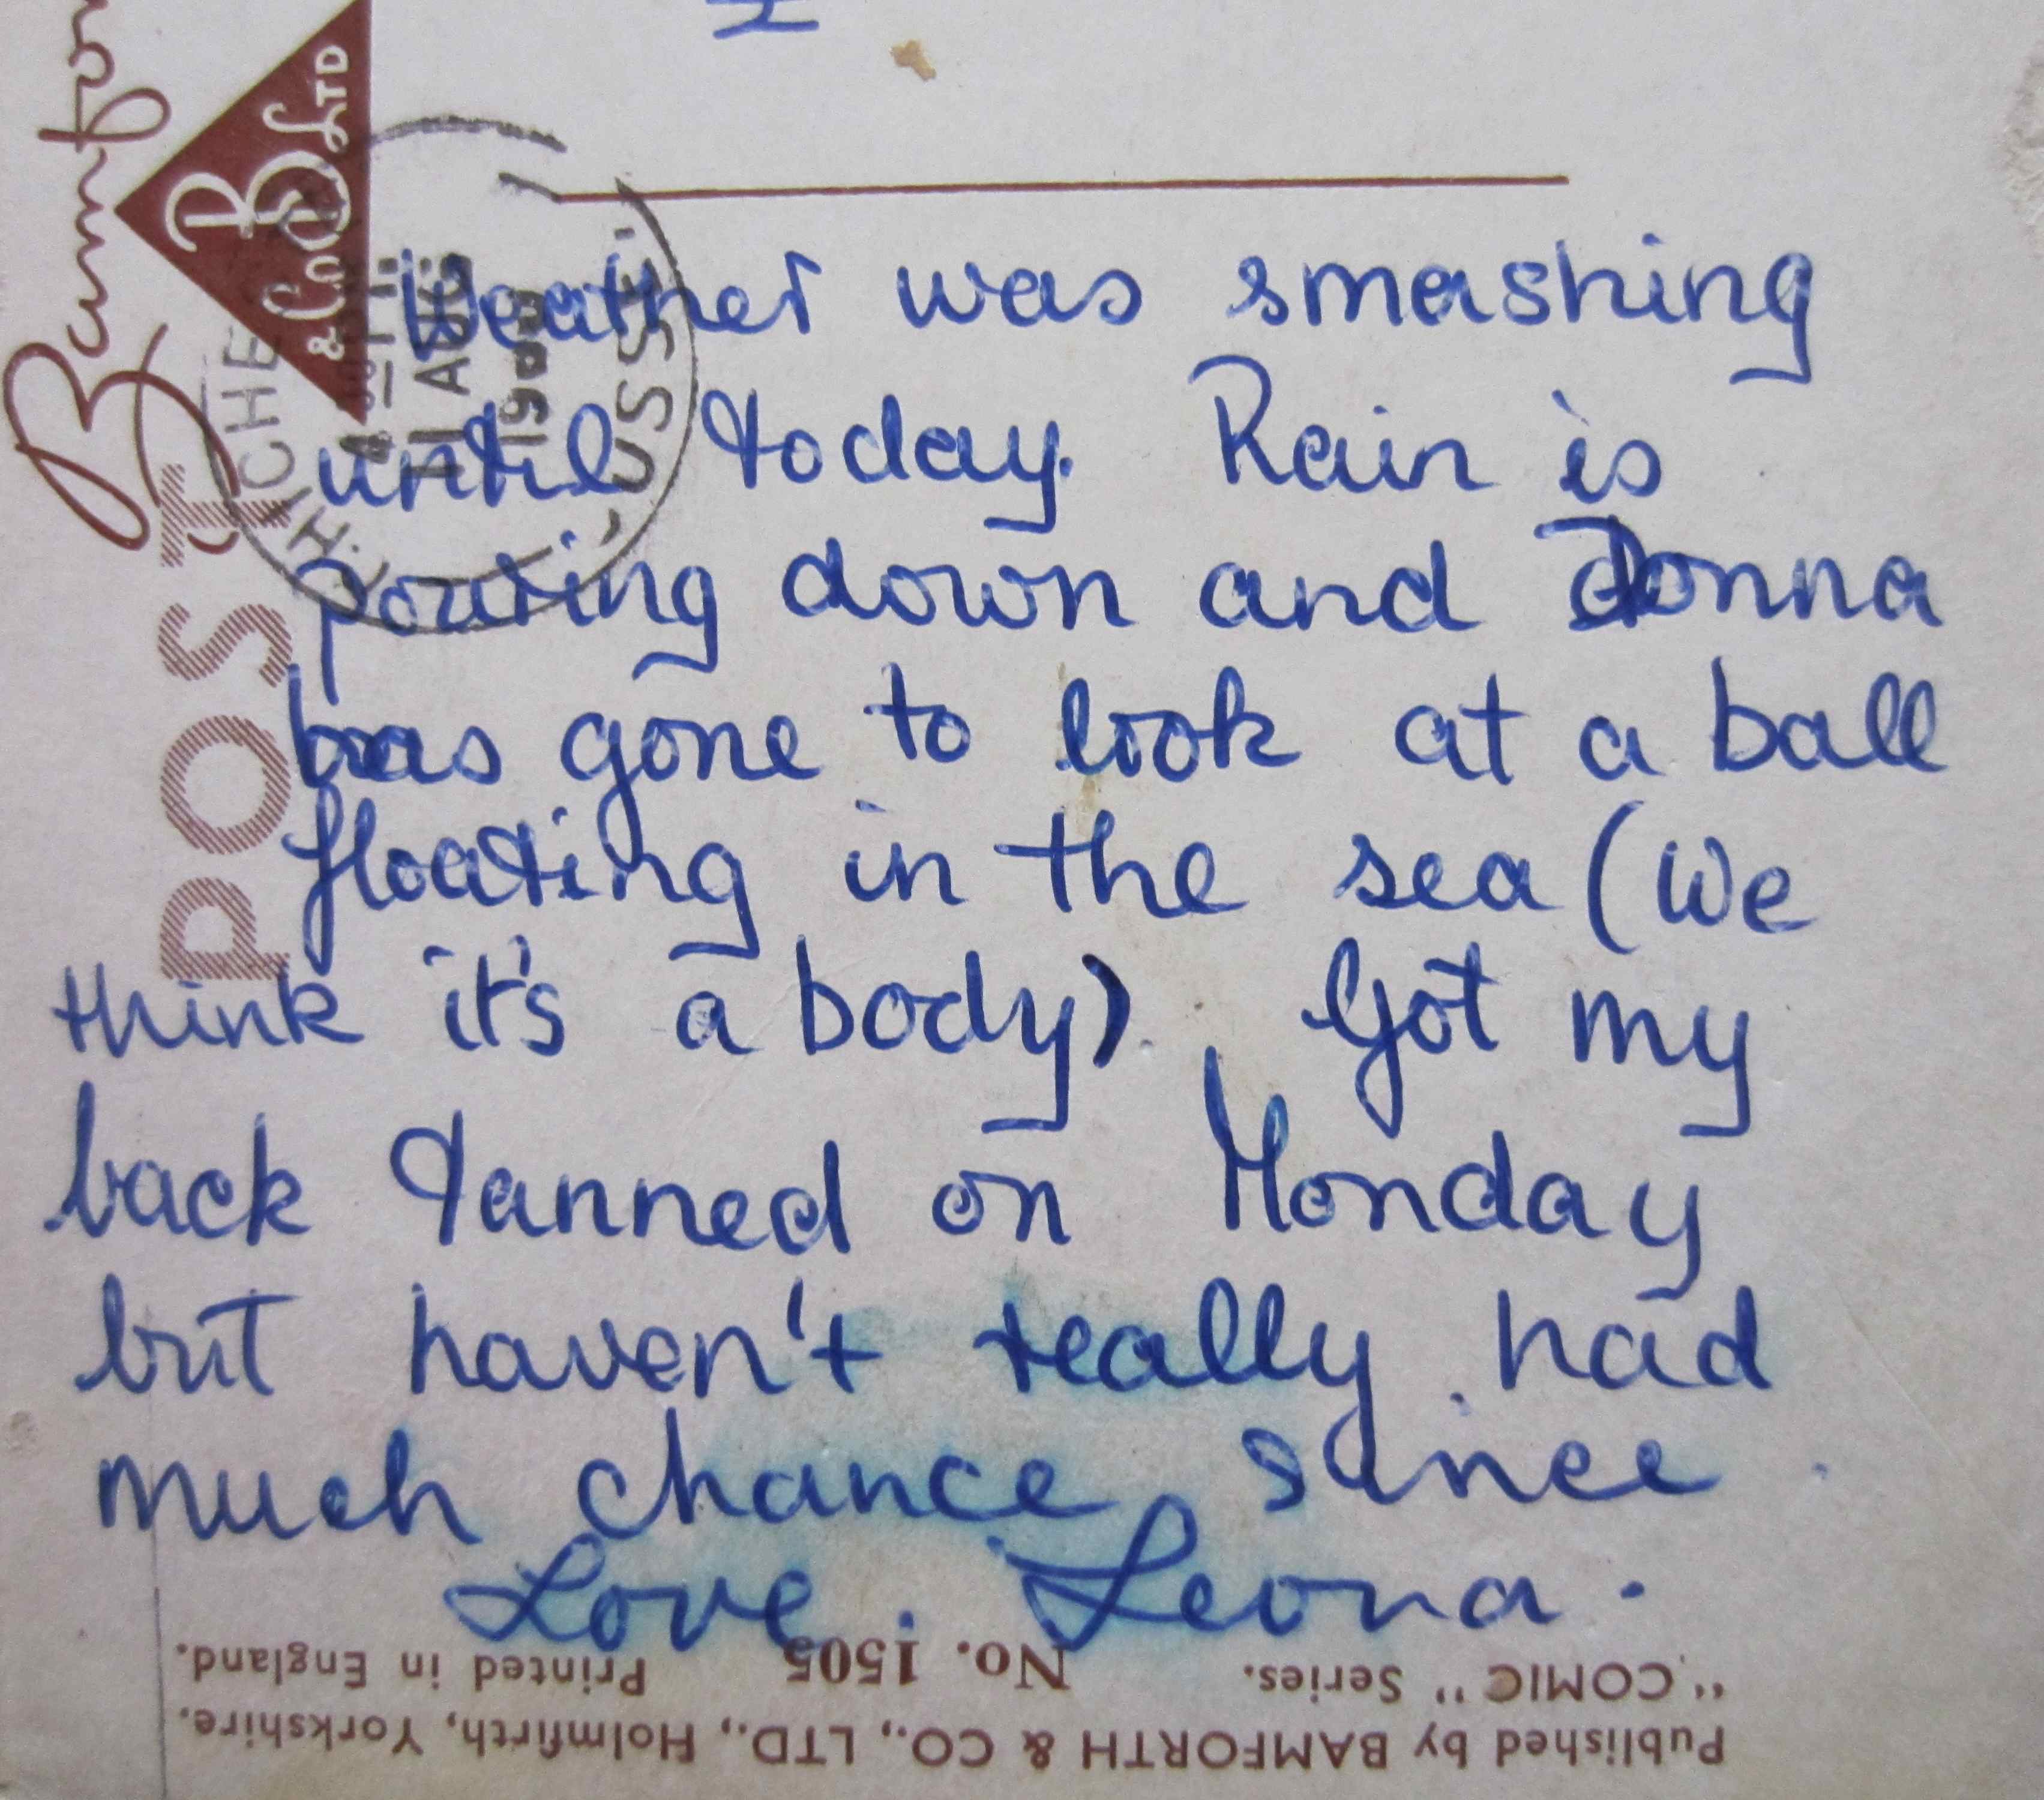 Weather was smashing
until today. Rain is
pouring down and Donna
has gone to look at a ball
floating in the sea (We
think it's a body). Got my
back tanned on Monday
but haven't really had
much chance since.
Love. Leona.
"COMIC" Series. No. 1505 Printed in England.
Published by BAMFORTH & CO., LTD., Holmfirth, Yorkshire.
POST
B
& Co LTD
11 AUG
SUSSEX